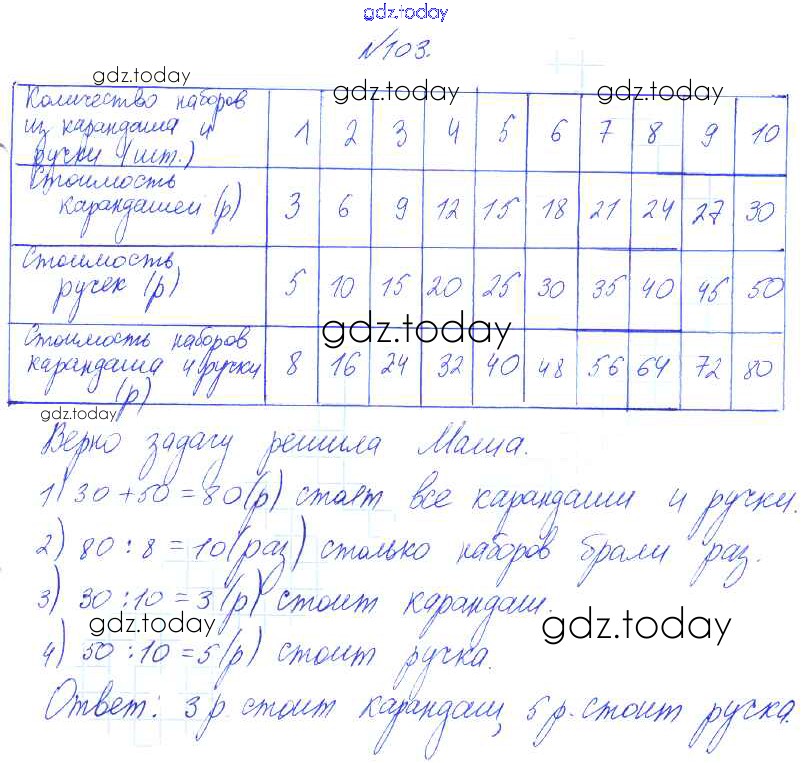 gdz.today
№103.
gdz.today gdz.today gdz.today
Количество наборов
из карандаша и 1 2 3 4 5 6 7 8 9 10
ручки (шт.)
Стоимость
карандашей (р) 3 6 9 12 15 18 21 24 27 30
Стоимость
ручек (р) 5 10 15 20 25 30 35 40 45 50
gdz.today
Стоимость наборов
карандаша и ручки 8 16 24 32 40 48 56 64 72 80
(р)
gdz.today
Верно задачу решила Маша.
1) 30 + 50 = 80 (р) стоят все карандаши и ручки.
2) 80 : 8 = 10 (раз) столько наборов брали раз.
3) 30 : 10 = 3 (р) стоит карандаш.
gdz.today gdz.today
4) 50 : 10 = 5 (р) стоит ручка.
Ответ: 3 р. стоит карандаш, 5 р. стоит ручка.